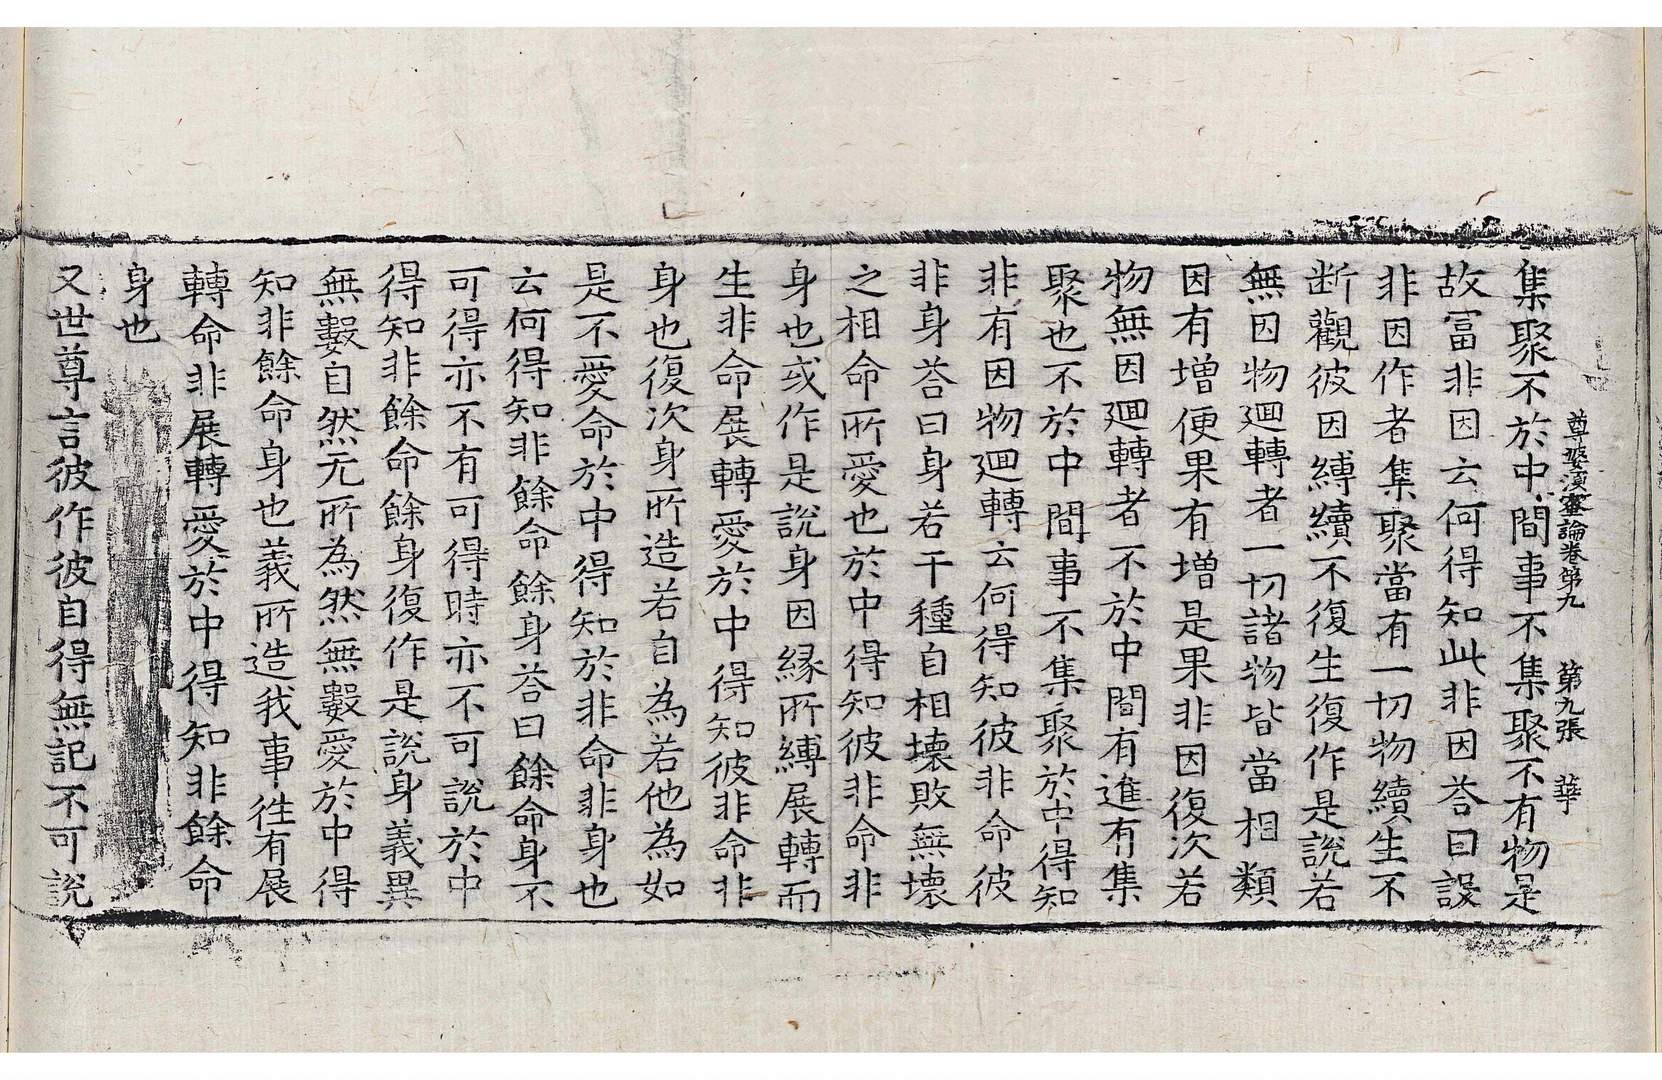 尊婆湏蜜論卷第九 第九張 華
集聚不於中間事不集聚不有物是
故冨非因云何得知此非因荅曰設
非因作者集聚當有一切物續生不
断觀彼因縛續不復生復作是說若
無因物迴轉者一切諸物皆當相類
因有增便果有增是果非因復次若
物無因迴轉者不於中間有進有集
聚也不於中間事不集聚於中得知
非有因物迴轉云何得知彼非命彼
非身荅曰身若干種自相壞敗無壞
之相命所愛也於中得知彼非命非
身也或作是說身因縁所縛展轉而
生非命展轉愛於中得知彼非命非
身也復次身所造若自為若他為如
是不愛命於中得知於非命非身也
云何得知非餘命餘身荅曰餘命身不
可得亦不有可得時亦不可說於中
得知非餘命餘身復作是說身義異
無數自然无所為然無數愛於中得
知非餘命身也義所造我事徃有展
轉命非展轉愛於中得知非餘命
身也
又世尊言彼作彼自得無記不可說